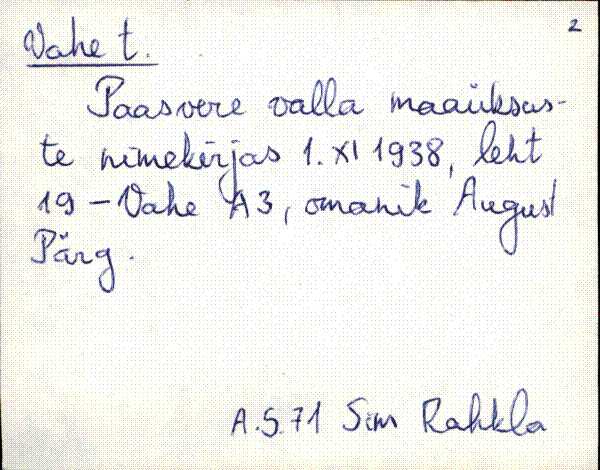 2
Vahe t.
Paasvere valla maaüksus-
te nimekirjas 1. XI 1938, leht
19 – Vahe A3, omanik August
Pärg.
A.S. 71 Sim Rahkla